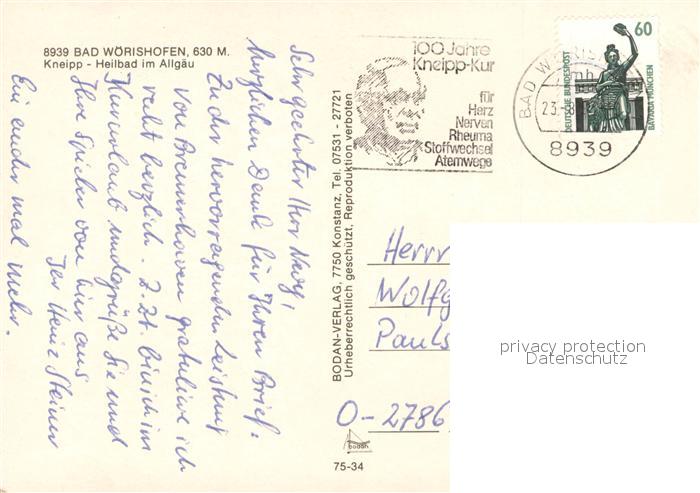 8939 BAD WÖRISHOFEN, 630 M.
Kneipp - Heilbad im Allgäu
Sehr geehrter Herr
herzlichen Dank für Ihren Brief.
Zu der hervorragenden Leistung
von Bremerhaven gratuliere ich
recht herzlich. Z. Zt. bin ich im
Kururlaub und grüße Sie und
Ihre Spieler von hier aus
Ihr Heinz Steiner
Ein ander mal mehr.
BODAN-VERLAG, 7750 Konstanz, Tel. 07531 - 27721
Urheberrechtlich geschützt, Reproduktion verboten
100 Jahre
Kneipp-Kur
für
Herz
Nerven
Rheuma
Stoffwechsel
Atemwege
BAD WÖRIS
23.
8939
60
DEUTSCHE BUNDESPOST
BAVARIA MÜNCHEN
Herrn
Wolfg
Pauls
O-2786
privacy protection
Datenschutz
bodan
75-34